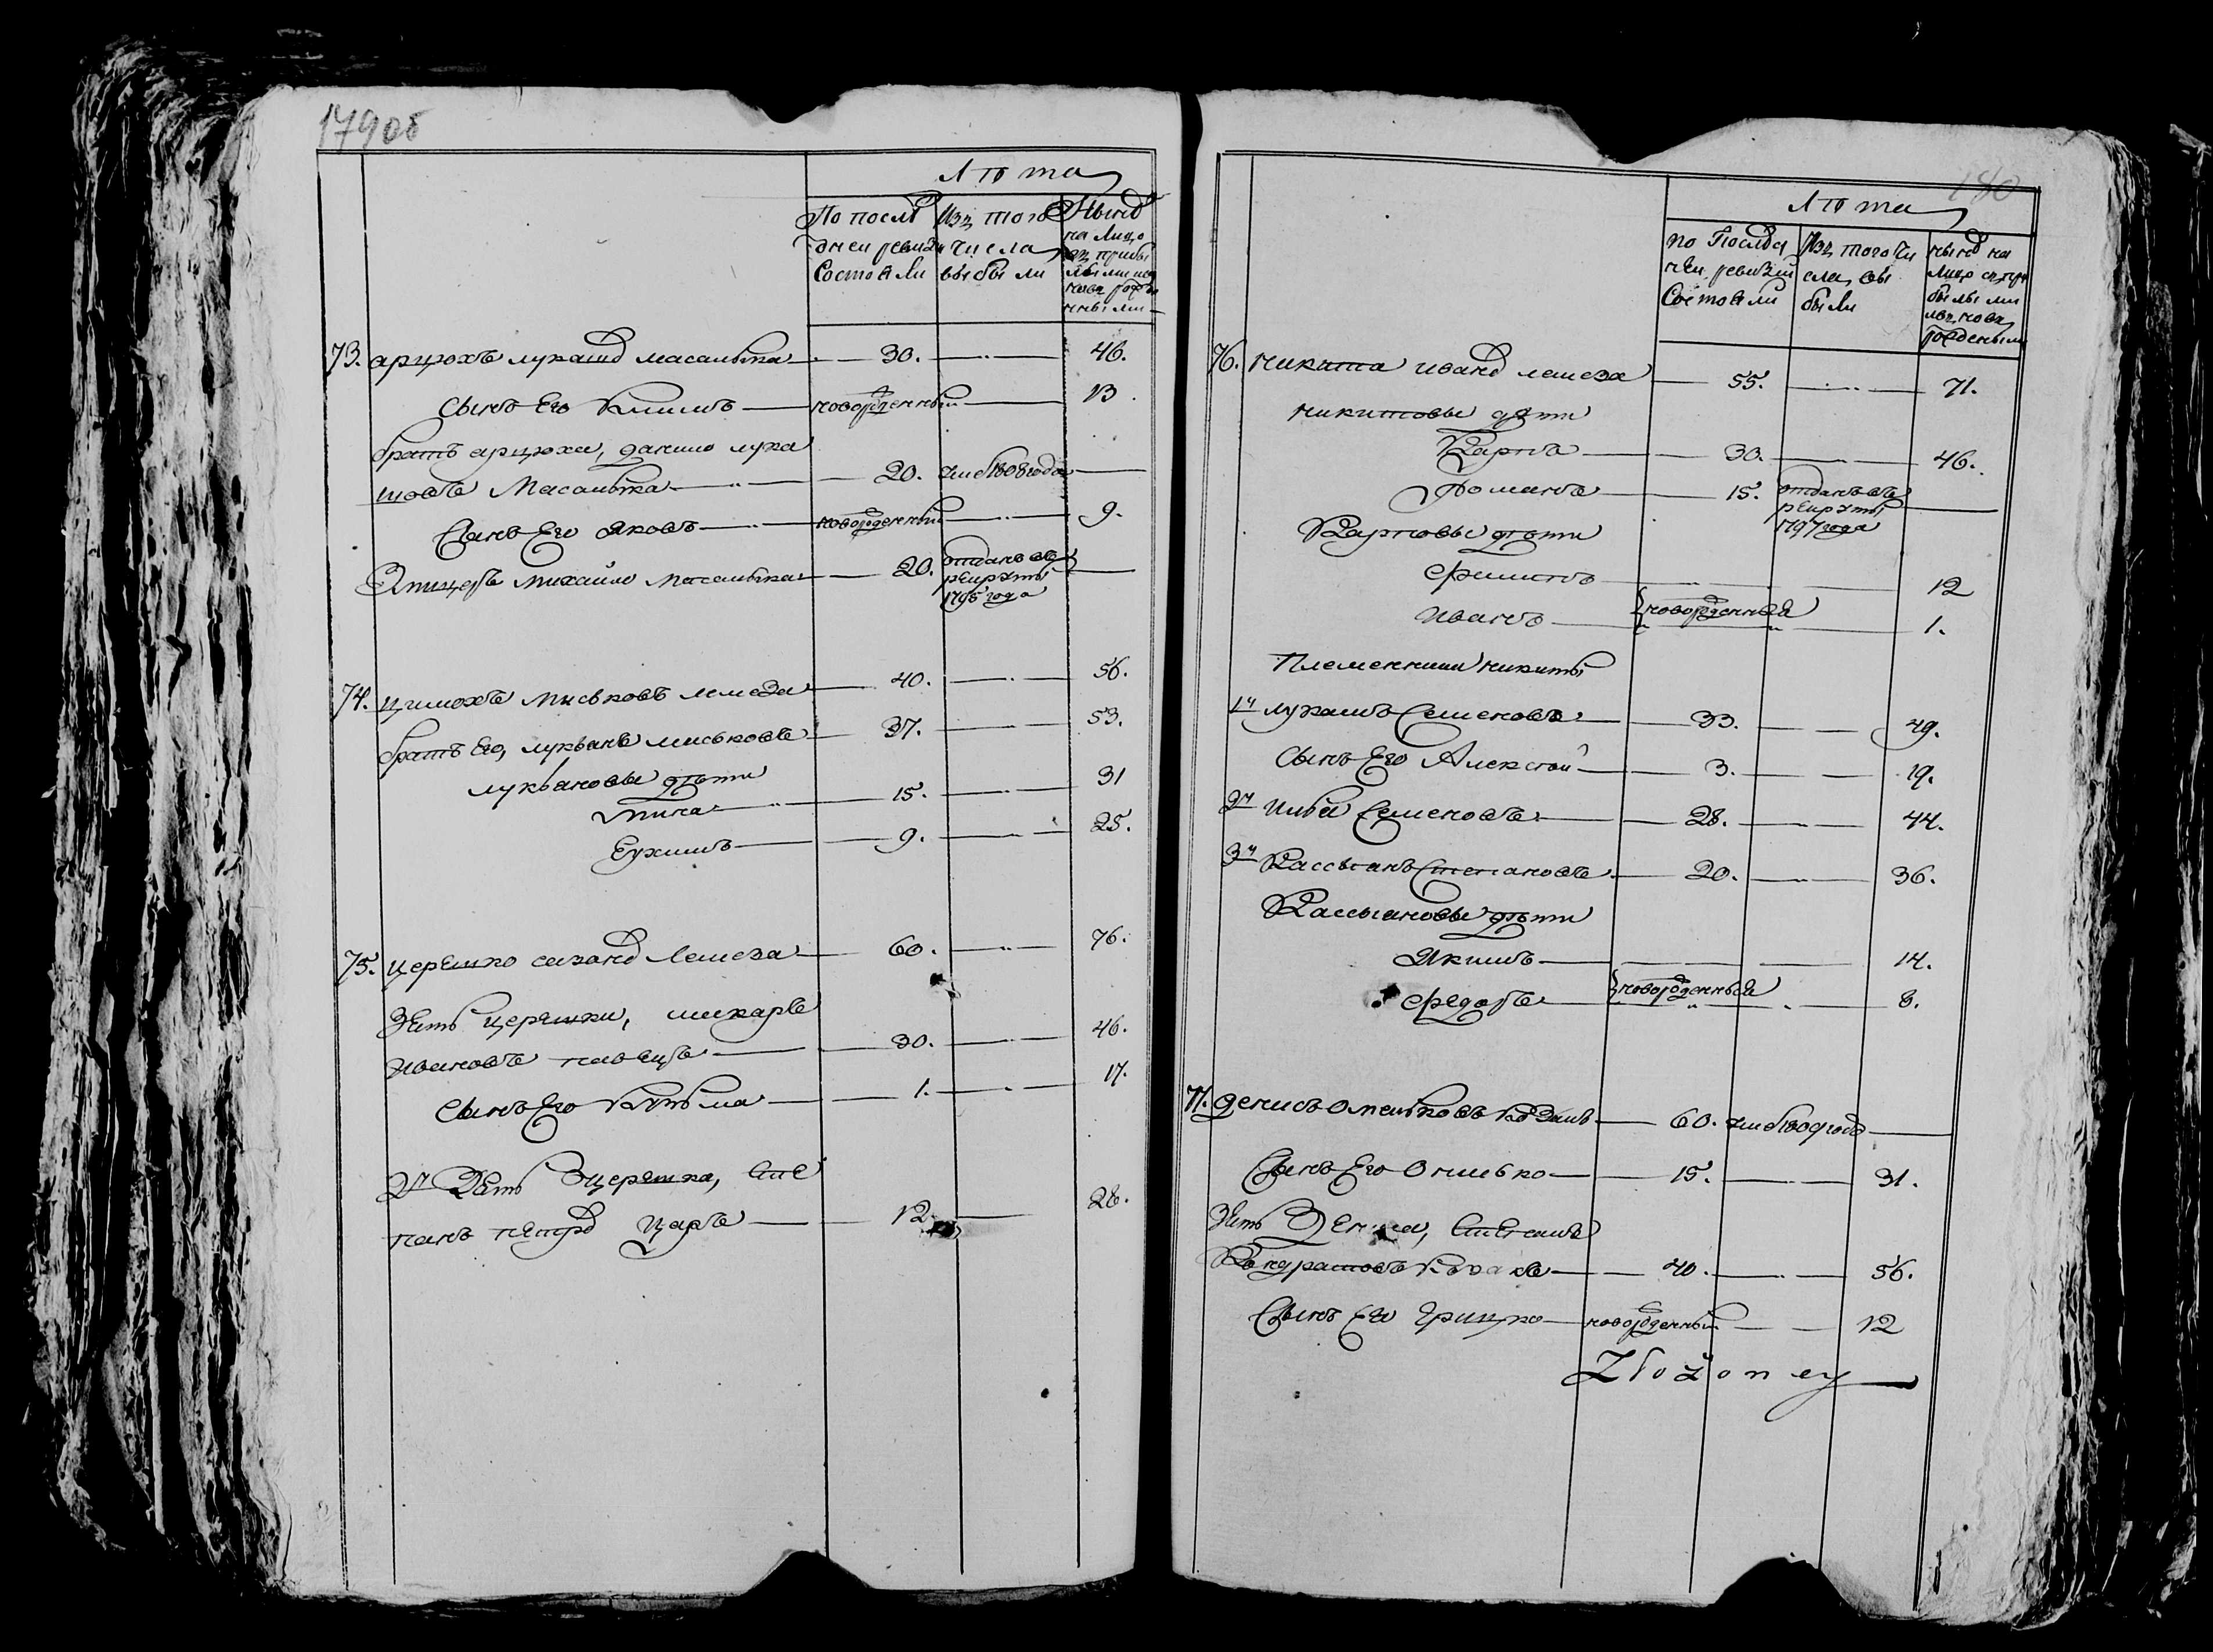 179об
Лѣта
По послѣ
дней ревизи
состояли
Изъ того
числа
выбыли
Нынѣ
на лицо
съ прибы
лыми и
новорожде
нными
73. арцюхъ лукашѣ масалыка 30. 46.
сынъ Его Климъ новорожденный 13.
братъ арцюха, данило лука
шовъ Масалыка 20. умеръ 1808 года
Сынъ Его Яковъ новорожденный 9.
Михайло Масалыка 20. отданъ въ
рекруты
1795 года
74. цимохъ миськовъ лемеза 40. 56.
братъ Его, лукьянъ миськовъ 37. 53.
лукьяновы дѣти
15. 31
Еухимъ 9. 25.
75. церешко Лемеза 60. 76.
Зять церешки, макаръ
Ивановъ 30. 46.
сынъ Его Кузьма 1. 17.
2й Зять церешка, Сте
панъ петрѣ Царъ 12. 28.
180
Лѣта
по послѣд
ней ревизии
Состояли
Изъ того чи
сла, вы
были
нынѣ на
лицо съ при
былыми
новоро
жденными
76. никита иванѣ лемеза 55. 71.
никитовы дѣти
Карпъ 30. 46.
Романъ 15. отданъ въ
рекруты
1797 года
Карповы дѣти
Филипъ 12
новорожденныя
Иванъ 1.
Племенники никиты
1й лукашъ Семеновъ 33. 49.
Сынъ Его Алексѣй 3. 19.
2й илья Семеновъ 28. 44.
3й Кассьянъ Степановъ 20. 36.
Кассьяновы дѣти
Якимъ 14.
новорожденныя
Федоръ 8.
77. денисъ Омельковъ 60. умеръ 1809 года
Сынъ Его Омелько 15. 31.
Зять Дениса,
Кондратовъ 40. 56.
Сынъ Его Грицко новорожденный 12
Złożoney